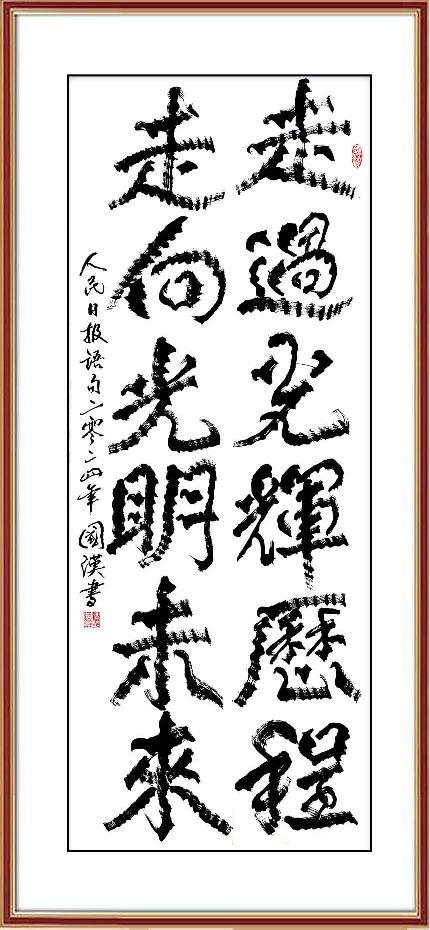 走過光輝歷程
走向光明未來
人民日报语句二零二四年國漢書